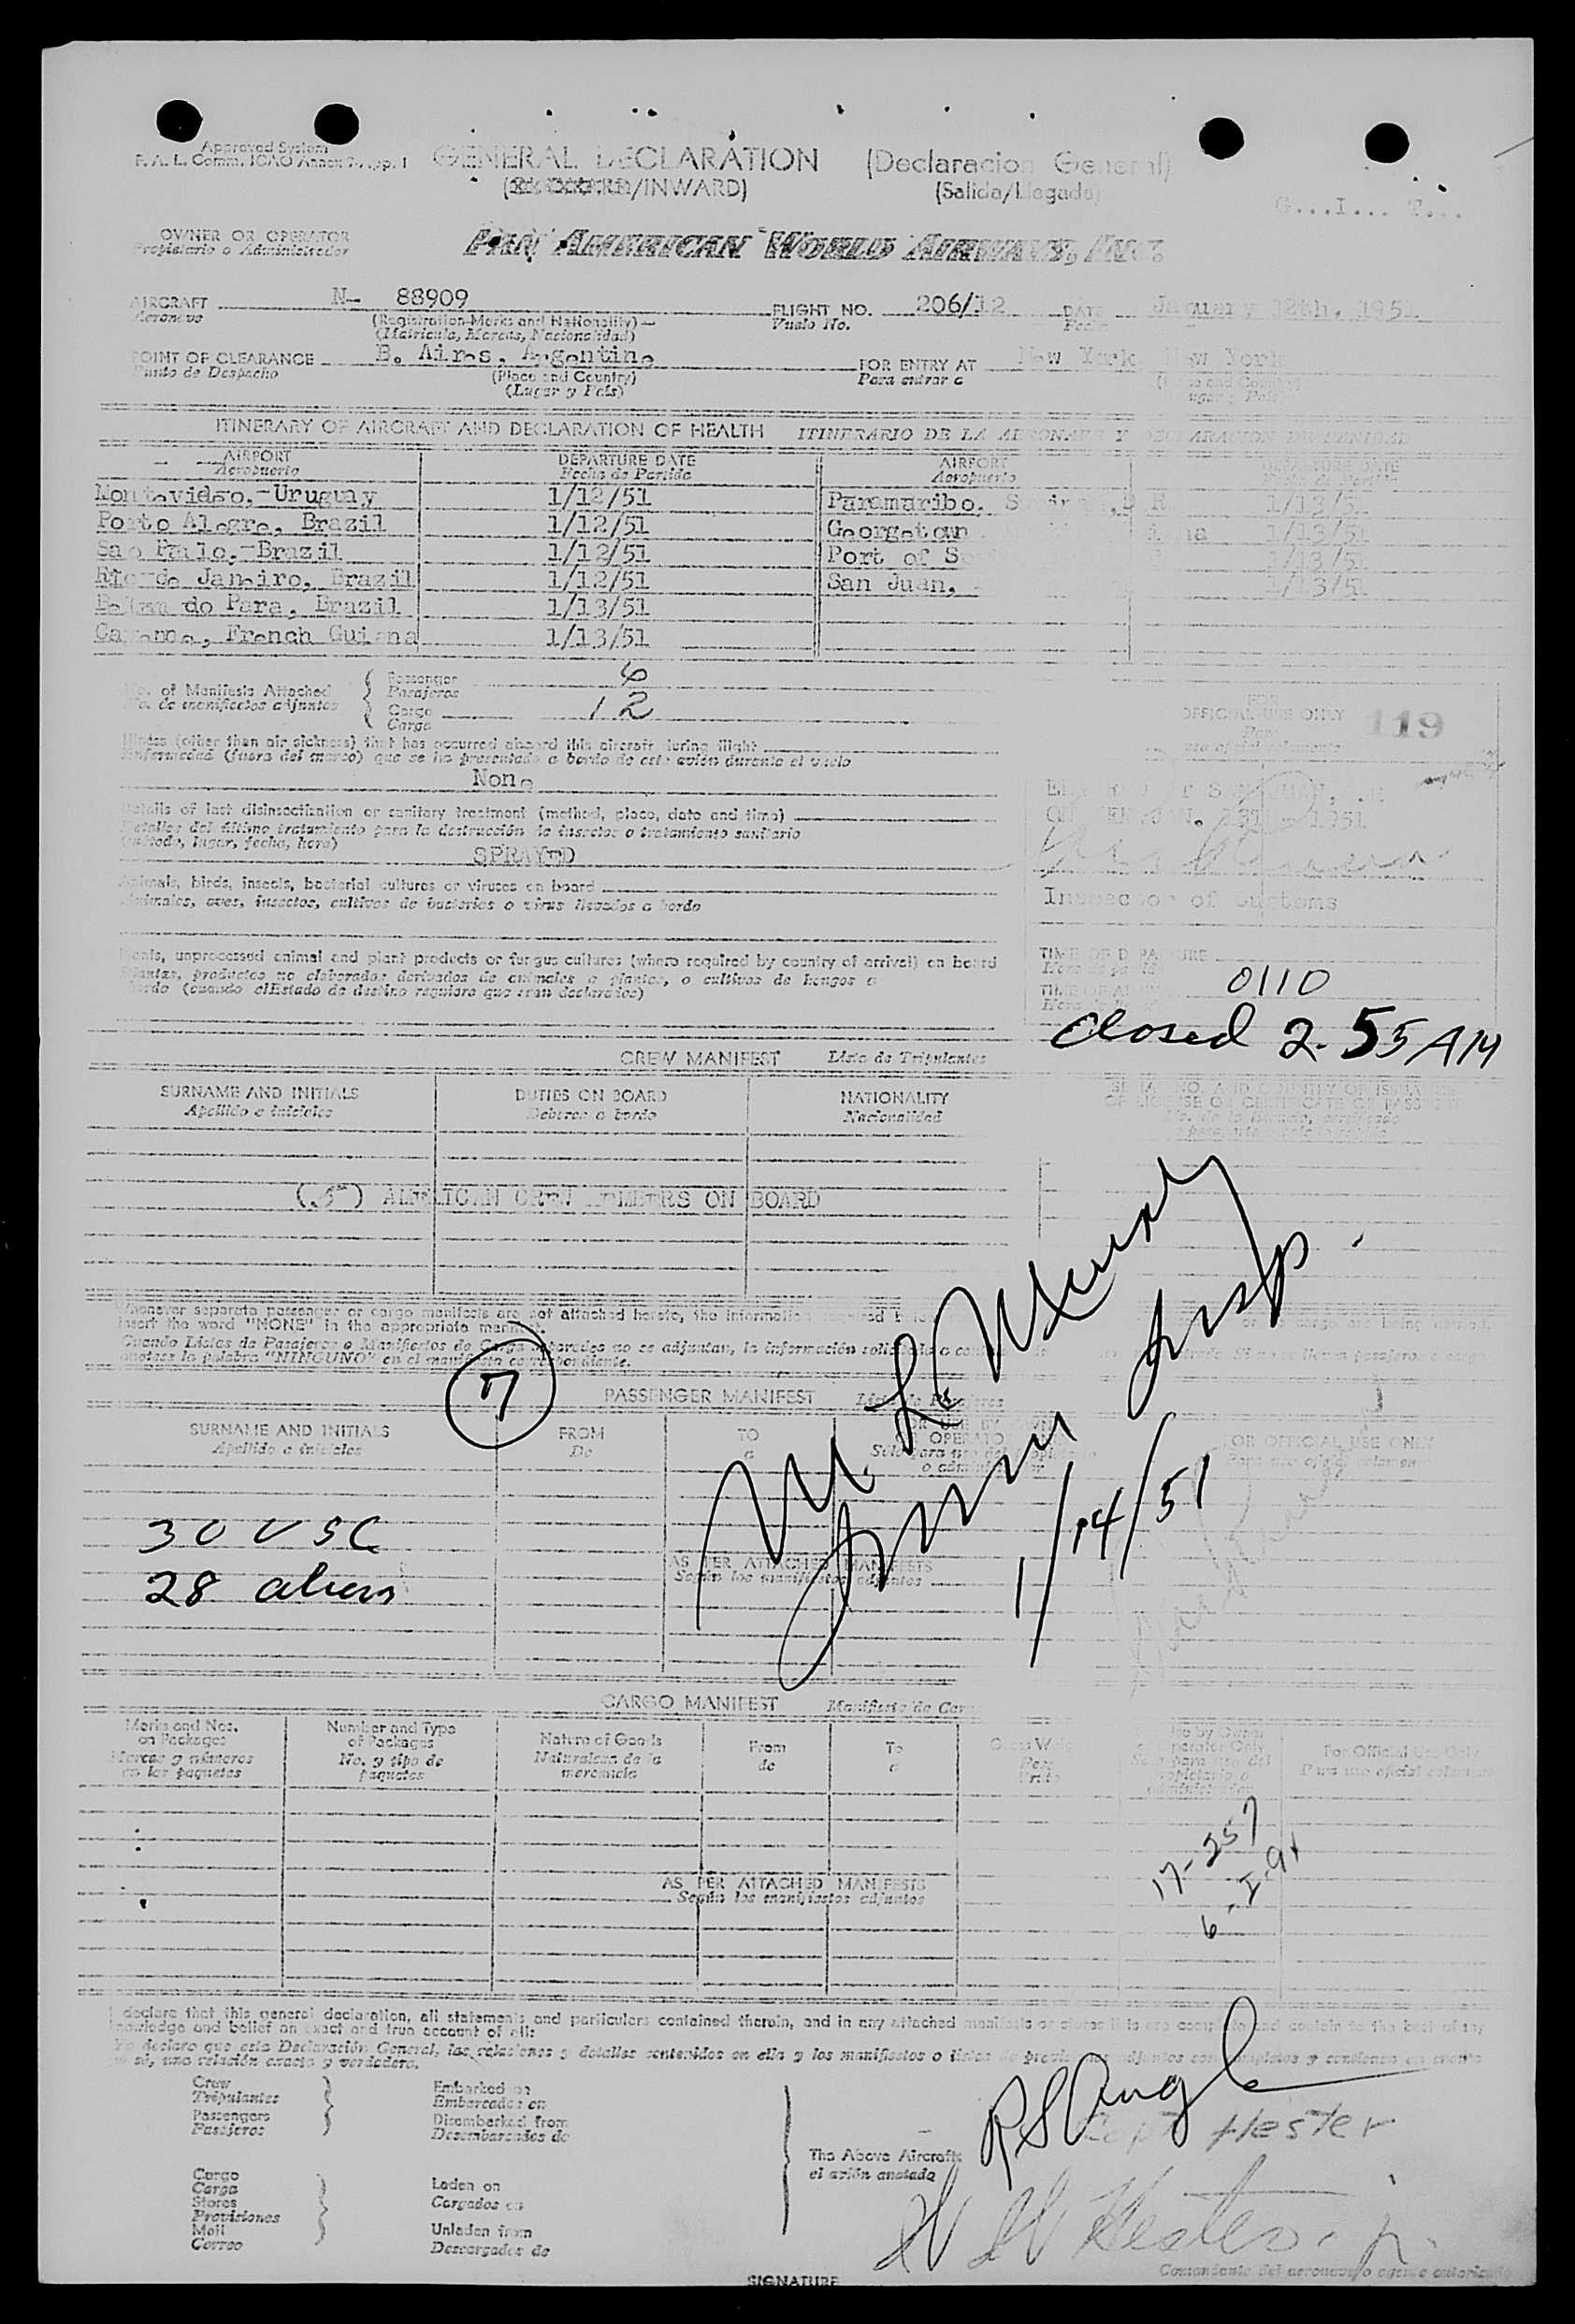 Approved System
F. A. L. Comm. ICAO Annex
GENERAL DECLARATION (Declaracion General)
/INWARD) (Salida/Llegada)
OWNER OR OPERATOR
Propietario o Administrador
PAN AMERICAN WORLD AIRWAYS, INC.
AIRCRAFT N- 88909 FLIGHT NO. 206/12 DATE January 12th, 1951
Aeronave (Registration Marks and Nationality) Vuelo No. Fecha
(Matricula, Marcas, Nacionalidad)
POINT OF CLEARANCE B. Aires, Argentina FOR ENTRY AT New York, New York
Punto de Despacho (Place and Country) Para entrar a
(Lugar y País)
ITINERARY OF AIRCRAFT AND DECLARATION OF HEALTH ITINERARIO DE LA AERONAVE Y DECLARACION DE SANIDAD
AIRPORT DEPARTURE DATE AIRPORT DEPARTURE DATE
Aeropuerto Fecha de Partida Aeropuerto Fecha de Partida
Montevideo,-Uruguay 1/12/51 Paramaribo, 1/13/5
Porto Alegre, Brazil 1/12/51 Georgetown 1/13/51
Sao Paulo,-Brazil 1/12/51 Port of 1/13/51
Rio de Janeiro, Brazil 1/12/51 San Juan, 1/13/51
Belem do Para, Brazil 1/13/51
Cayenne, French Guiana 1/13/51
No. of Manifests Attached Passenger 6
No. de manifiestos adjuntos Pasajeros
Cargo 12
Carga
FOR
OFFICIAL USE ONLY 119
Para
uso oficial solamente
Illness (other than air sickness) that has occurred aboard this aircraft during flight
Enfermedad (fuera del mareo) que se ha presentado a bordo de este avión durante el vuelo
None
Details of last disinsectization or sanitary treatment (method, place, date and time)
Detalles del último tratamiento para la destrucción de insectos o tratamiento sanitario
(método, lugar, fecha, hora)
SPRAYED
1951
Inspector of Customs
Animals, birds, insects, bacterial cultures or viruses on board
Animales, aves, insectos, cultivos de bacterias o virus llevados a bordo
Plants, unprocessed animal and plant products or fungus cultures (where required by country of arrival) on board
Plantas, productos no elaborados derivados de animales o plantas, o cultivos de hongos a
bordo (cuando el Estado de destino requiera que sean declarados)
TIME OF DEPARTURE
TIME OF ARRIVAL 0110
Closed 2-55 AM
CREW MANIFEST Lista de Tripulantes
SURNAME AND INITIALS DUTIES ON BOARD NATIONALITY SERIAL NO. AND COUNTRY OF ISSUANCE
Apellido e iniciales Deberes a bordo Nacionalidad OF LICENSE OR CERTIFICATE OR PASSPORT
(5) AMERICAN CREW MEMBERS ON BOARD
Whenever separate passenger or cargo manifests are not attached hereto, the information required
insert the word "NONE" in the appropriate manifest.
Cuando Listas de Pasajeros o Manifiestos de Carga separados no se adjuntan, la información
anótese la palabra "NINGUNO" en el manifiesto correspondiente.
7
PASSENGER MANIFEST Lista de Pasajeros
SURNAME AND INITIALS FROM TO FOR OFFICIAL USE ONLY
Apellido e iniciales De a Para uso oficial solamente
30 USC
28 aliens
Insp.
1/14/51
AS PER ATTACHED MANIFESTS
Según los manifiestos adjuntos
CARGO MANIFEST Manifiesto de Carga
Marks and Nos. on Packages Number and Type of Packages Nature of Goods From To For Official Use Only
Marcas y números en los paquetes No. y tipo de paquetes Naturaleza de la mercancía de a Para uso oficial solamente
17-257
AS PER ATTACHED MANIFESTS
Según los manifiestos adjuntos
I declare that this general declaration, all statements and particulars contained therein, and in any attached manifests or stores lists are complete and contain to the best of my
knowledge and belief an exact and true account of all:
Yo declaro que esta Declaración General, las relaciones y detalles contenidos en ella y los manifiestos o listas de provisiones adjuntos son completos y contienen en cuanto
sé, una relación exacta y verdadera.
Crew Embarked on
Tripulantes Embarcados en
Passengers Disembarked from
Pasajeros Desembarcados de
The Above Aircraft:
el avión anotado
Capt Hester
Cargo Laden on
Carga Cargados en
Stores
Provisiones
Mail Unladen from
Correo Descargados de
SIGNATURE
Comandante del aeronave o agente autorizado